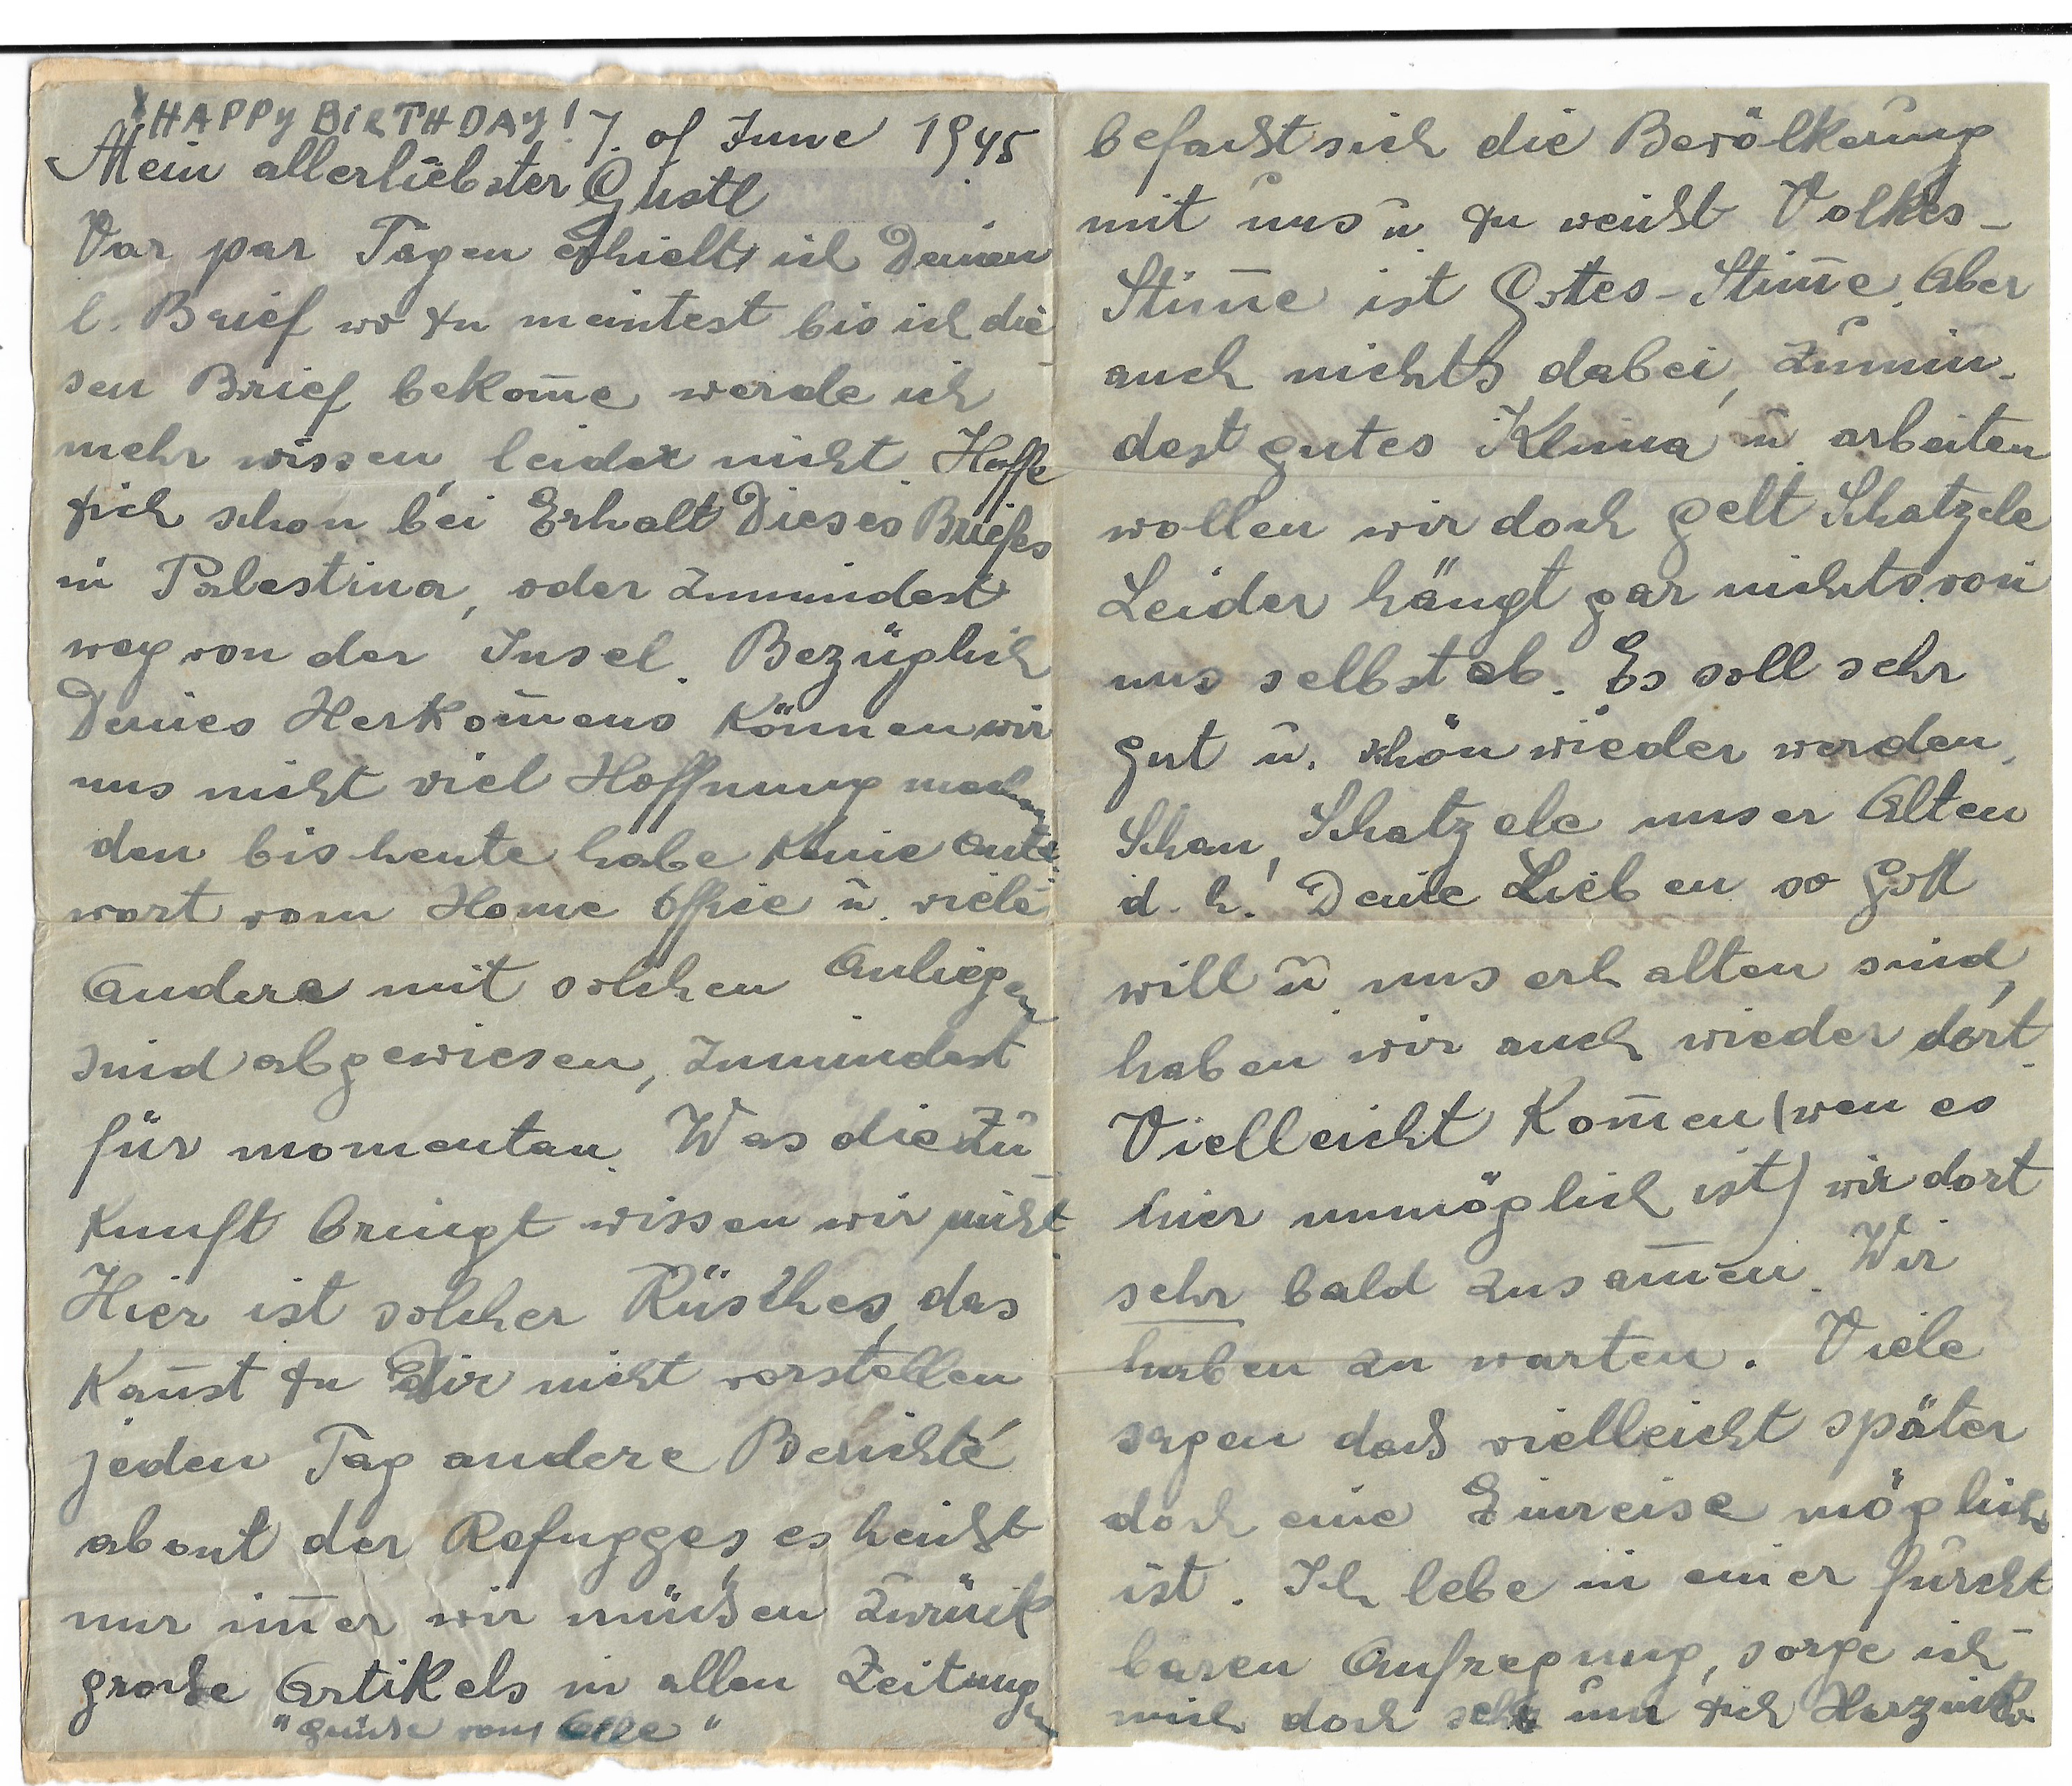 HAPPY BIRTHDAY! 7. of June 1945
Mein allerliebster Gustl
Vor par Tagen erhielt ich Deinen
l. Brief wo Du meintest bis ich die-
sen Brief bekom̅e werde ich
mehr wissen, leider nicht. Hoffe
Dich schon bei Erhalt Dieses Briefes
in Palestina, oder zumindest
weg von der Insel. Bezüglich
Deines Herkom̅ens können wir
uns nicht viel Hoffnung machen
den bis heute habe keine Ant-
wort vom Home Office u. viele
Andere mit solchen Anliegen
sind abgewiesen, zumindest
für momentan. Was die Zu-
kunft bringt wissen wir nicht.
Hier ist solcher Rüsches, das
kan̅st Du Dir nicht vorstellen
jeden Tag andere Berichte
about der Refugges, es heißt
nur im̅er wir müßen zurück
große Artikels in allen Zeitungen
"Grüße vom Elle"
befaßt sich die Bevölkerung
mit uns u. Du weißt Volkes-
Stim̅e ist Gotes-Stim̅e. Aber
auch nichts dabei, zumin-
dest gutes Klima u. arbeiten
wollen wir doch gelt Schatzele
Leider hängt gar nichts von
uns selbst ab. Es soll sehr
gut u. schön wieder werden.
Schau, Schatzele unser Alten
d. h. Deine Lieben so Gott
will u uns erhalten sind,
haben wir auch wieder dort.
Vielleicht kom̅en (wen es
hier unmöglich ist) wir dort
sehr bald zusam̅en. Wir
haben zu warten. Viele
sagen daß vielleicht später
doch eine Einreise möglich
ist. Ich lebe in einer furcht
baren Aufregung, sorge ich
mich doch sehr um Dich Herzink